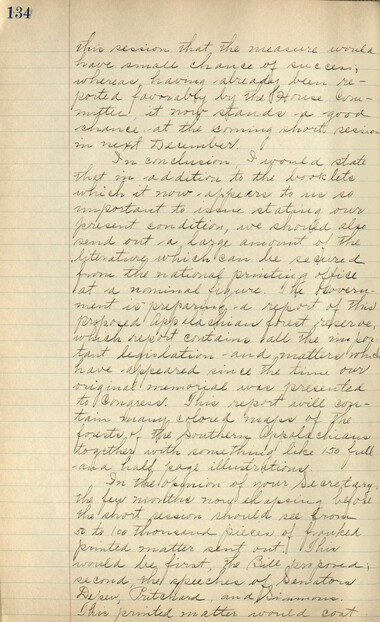 134
this session that the measure would
have small chance of success;
whereas, having already been re-
ported favorably by the House Com-
mittee, it now stands a good
chance at the coming short session
in next December.
In conclusion, I would state
that in addition to the booklets
which it now appears to us so
important to issue stating our
present condition, we should also
send out a large amount of the
literature which can be secured
from the national printing office
at a nominal figure. The Govern-
ment is preparing a report of this
proposed Appalachian forest reserve,
which report contains all the impor-
tant legislation and matters which
have appeared since the time our
original memorial was presented
to Congress. This report will con-
tain many colored maps of the
forests of the Southern Appalachians
together with something like 150 full
and half page illustrations.
In the opinion of your Secretary,
the few months now elapsing before
the short session should see from
50 to 100 thousand pieces of franked
printed matter sent out. This
would be, first, the Bill proposed;
second the speeches of Senators
Depew, Pritchard, and Simmons.
This printed matter would cost